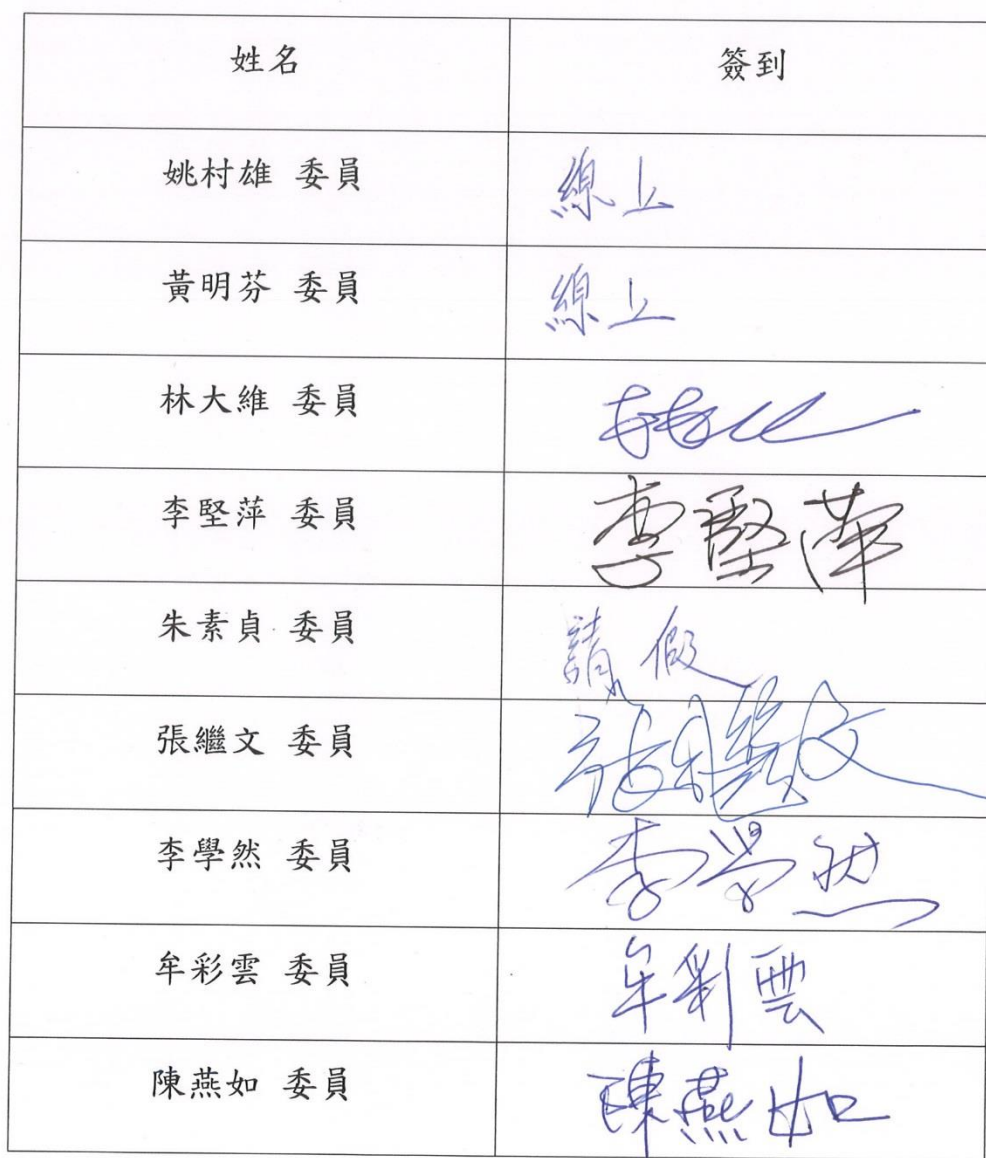 姓名 簽到
姚村雄 委員 線上
黃明芬 委員 線上
林大維 委員
李堅萍 委員 李堅萍
朱素貞 委員 請假
張繼文 委員 張繼文
李學然 委員 李學然
牟彩雲 委員 牟彩雲
陳燕如 委員 陳燕如